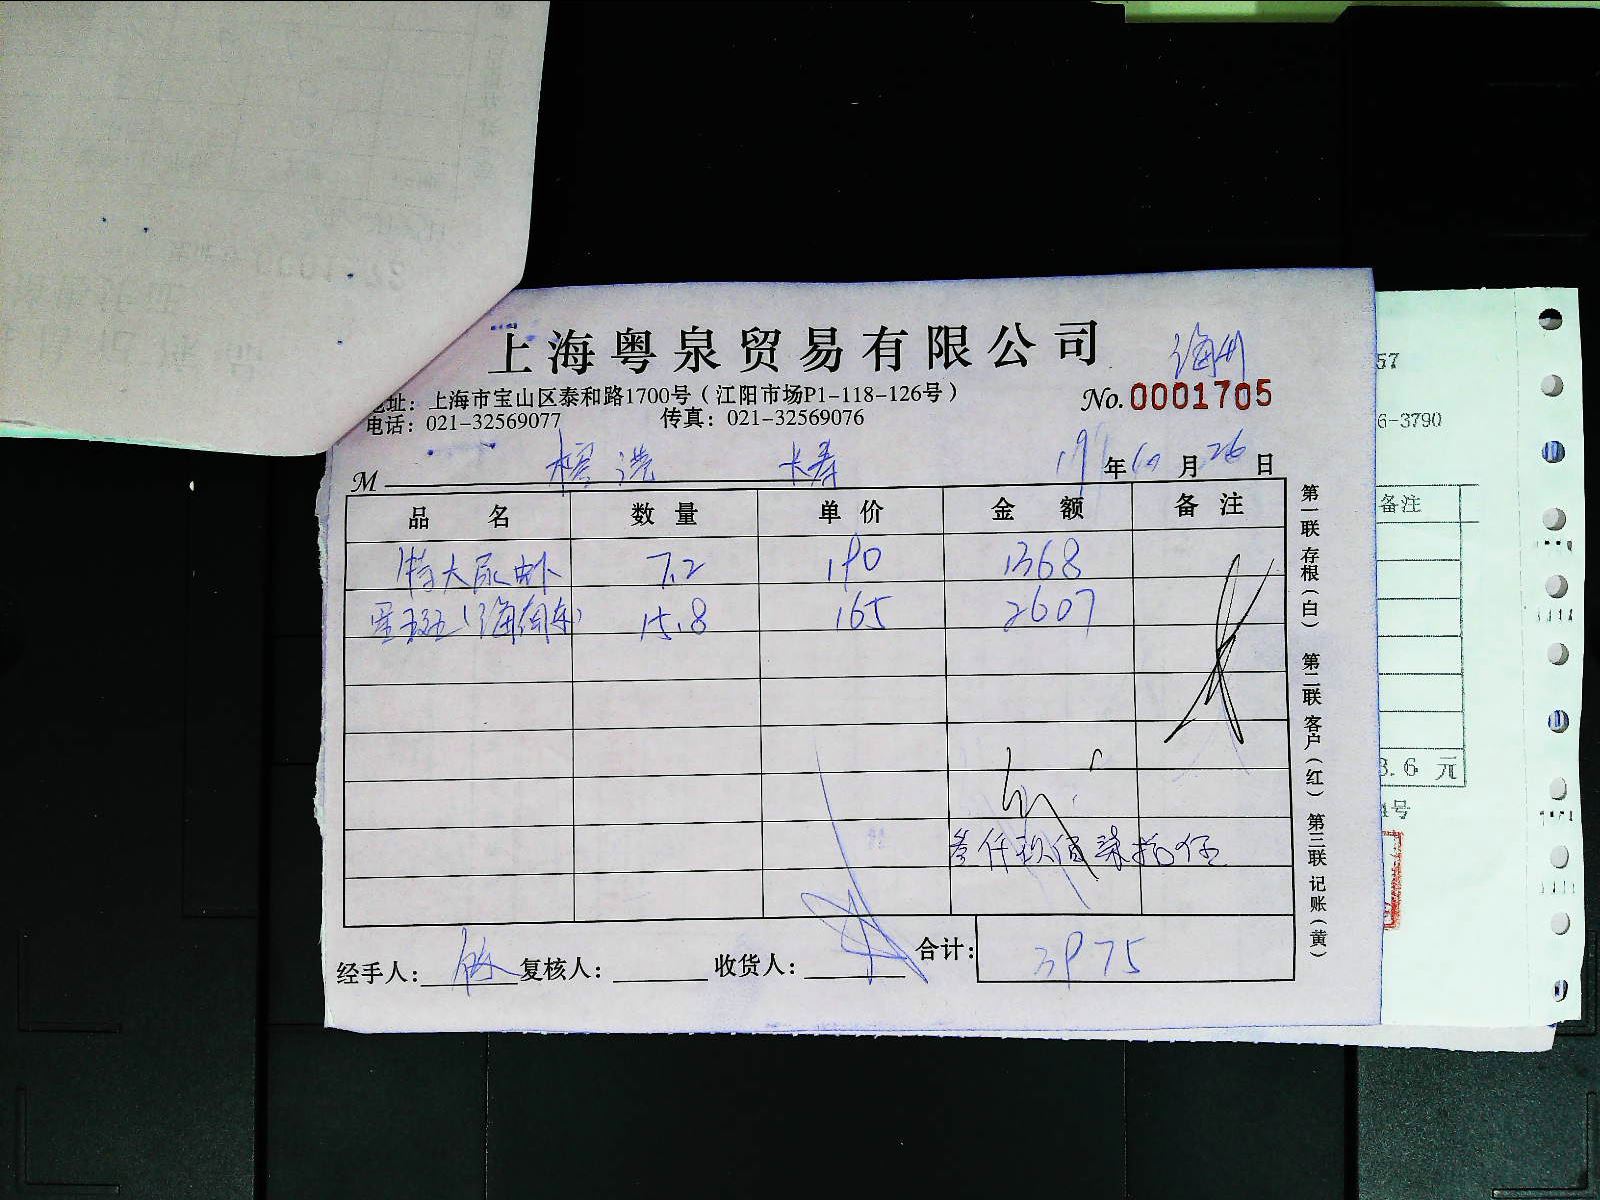 上海粤泉贸易有限公司
地址：上海市宝山区泰和路1700号（江阳市场P1-118-126号）
No.0001705
电话：021-32569077 传真：021-32569076
M 长寿 19年10月26日
品名 数量 单价 金额 备注
特大尿虾 7.2 190 1368
15.8 165 2607
叁仟玖佰柒拾伍
经手人： 复核人： 收货人： 合计：3975
第一联 存根（白） 第二联 客户（红） 第三联 记账（黄）
57
6-3790
备注
3.6 元
号